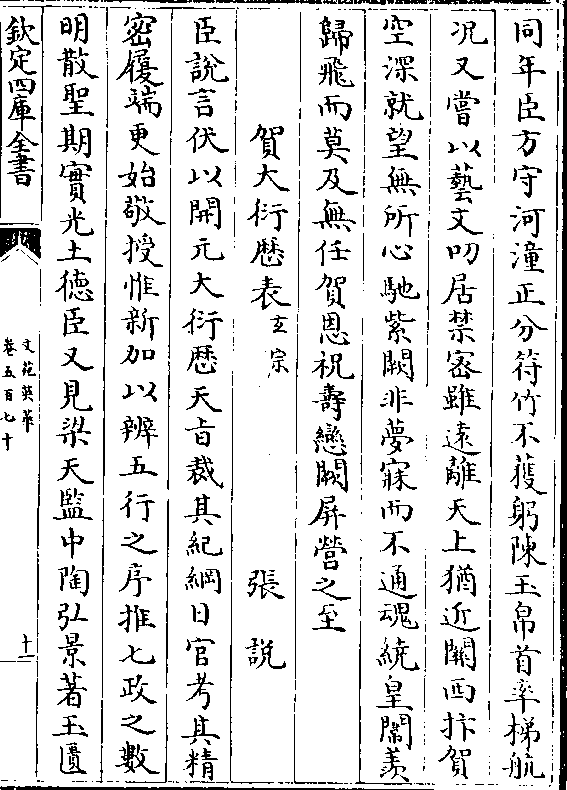 同年臣方守河潼正分符竹不獲躬陳玉帛首率梯航
况又嘗以藝文叨居禁宻雖逺離天上猶近關西抃賀
空深就望無所心馳紫闕非夢寐而不通魂繞皇闈羨
歸飛而莫及無任賀恩祝壽戀闕屏營之至
賀大衍厯表玄宗 張説
臣說言伏以開元大衍厯天㫖裁其紀綱日官考其精
宻履端更始敬授惟新加以辨五行之序推七政之數
明散聖期實光土德臣又見梁天監中陶弘景著玉匱
欽定四庫全書
文苑英華
卷五百七十
十一